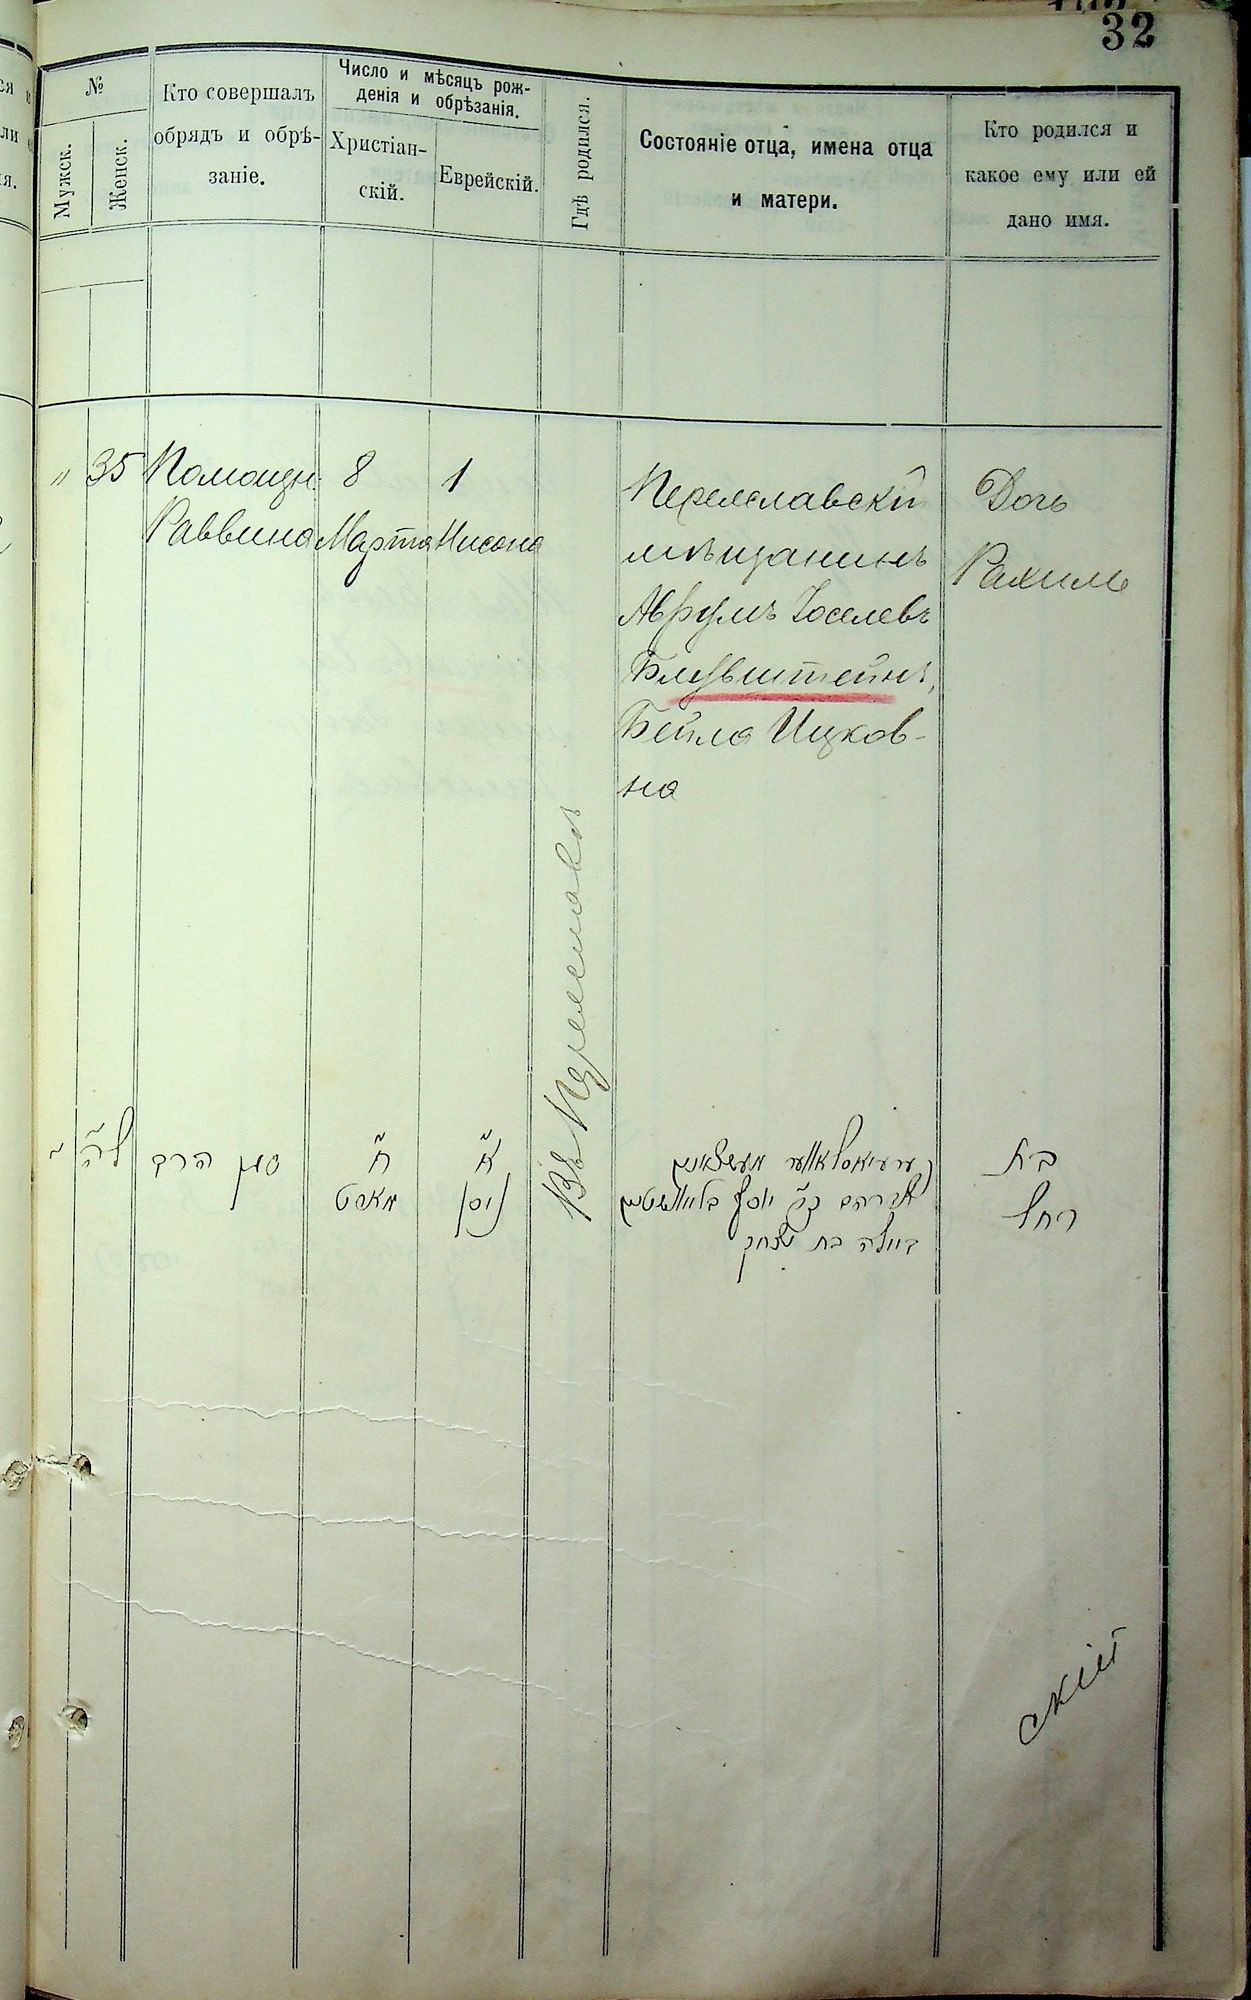 32
№
Мужск.
Женск.
Кто совершалъ
обрядъ и обрѣ-
заніе.
Число и мѣсяцъ рож-
денія и обрѣзанія.
Христіан-
скій.
Еврейскій.
Гдѣ родился.
Состояніе отца, имена отца
и матери.
Кто родился и
какое ему или ей
дано имя.
" 35
Помощн.
Раввина
8
Марта
1
Нисона
Въ Переяславлѣ
Переяславскій
мѣщанинъ
Аврумъ Іоселевъ
Блувштейнъ,
Бейла Ицков-
на
Дочь
Рахиль
לה
סגן הרב
ח
מארט
א
ניסן
אברהם יוסף בלואשטיין
ביילה בת יצחק
בת
רחל
скій